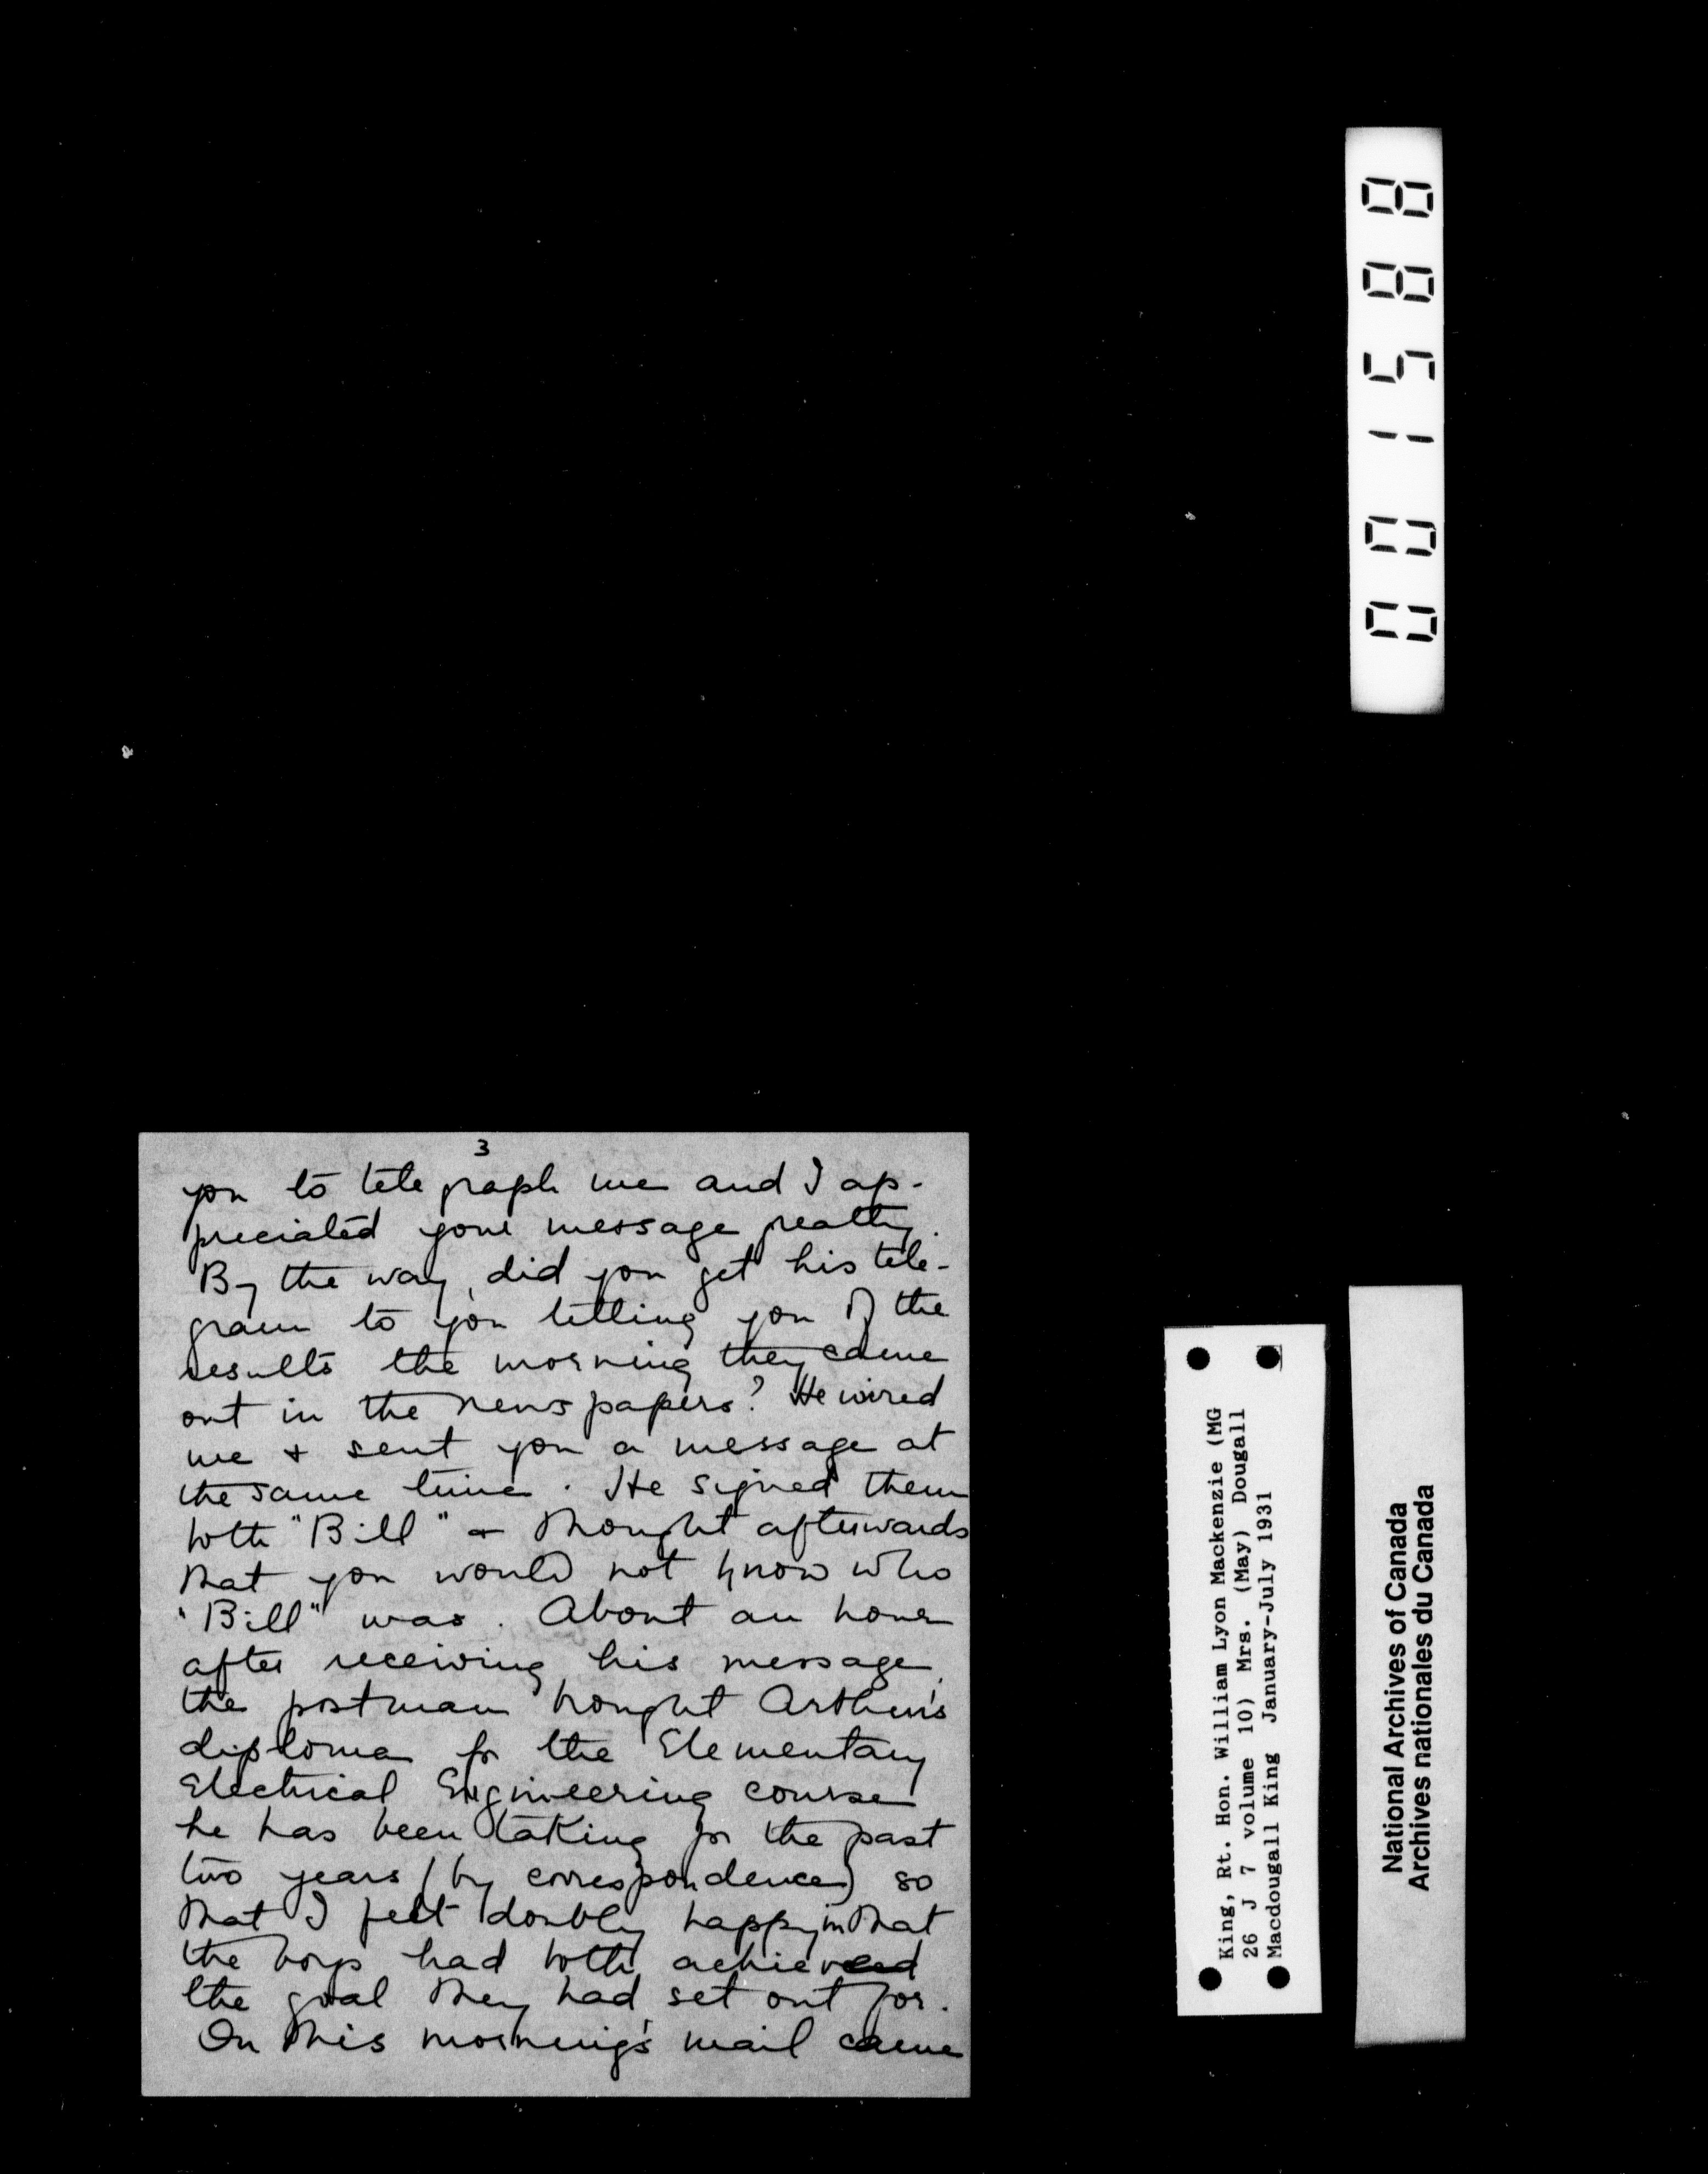 3
you to telegraph me and I ap-
preciated your message greatly.
By the way, did you get his tele-
gram to you telling you of the
results the morning they came
out in the newspapers? He wired
me & sent you a message at
the same time. He signed them
both "Bill" & thought afterwards
that you would not know who
"Bill" was. About an hour
after receiving his message
the postman brought Arthur's
diploma for the Elementary
Electrical Engineering course
he has been taking for the past
two years (by correspondence) so
that I felt doubly happy in that
the boys had both achieved
the goal they had set out for.
On this morning's mail came
001588
King, Rt. Hon. William Lyon Mackenzie (MG
26 J 7 volume 10) Mrs. (May) Dougall
Macdougall King January-July 1931
National Archives of Canada
Archives nationales du Canada